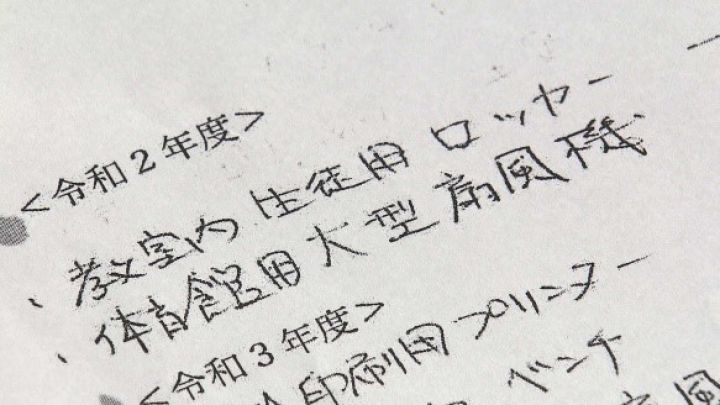 <令和2年度>
・教室内 生徒用 ロッカー
・体育館用大型扇風機
<令和3年度>
印刷用プリンター
ベンチ
扇風